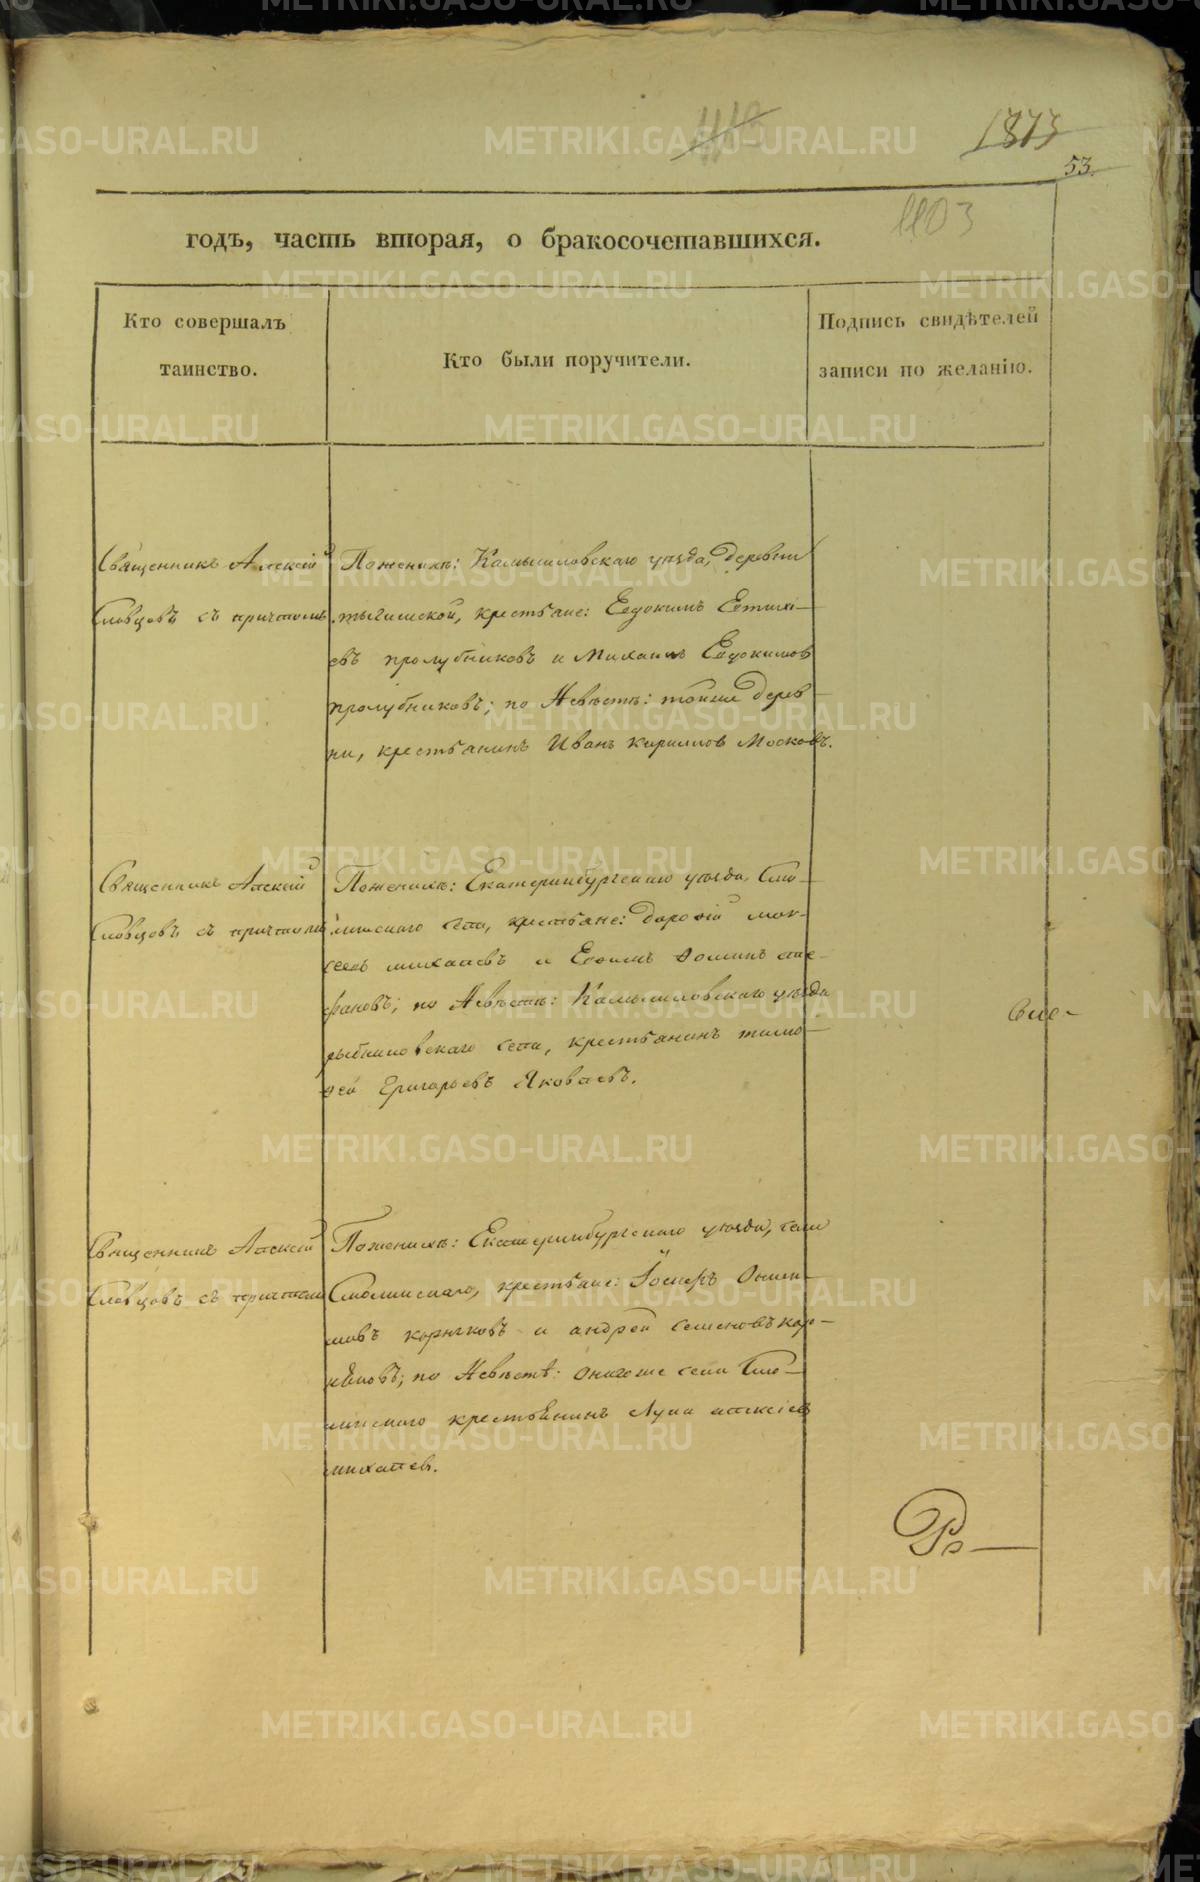 1373
53.
1103
годъ, часть вторая, о бракосочетавшихся.
Кто совершалъ
таинство.
Кто были поручители.
Подпись свидѣтелей
записи по желанію.
Священникъ Алексій
Словцовъ съ причтомъ
По женихѣ: Камышловскаго уѣзда, деревни
крестьяне: Евдокимъ
евъ пролубниковъ и Михаилъ Евдокимов
пролубниковъ; по Невѣстѣ: тойже дерев
ни, крестьянинъ Иванъ кириллов Московъ.
Священникъ Алексій
Словцовъ съ причтомъ
По женихѣ: Екатеринбургскаго уѣзда, Смо-
линскаго села, крестьяне: дороѳій мои-
сеевъ михалевъ и Ефимъ Ѳоминъ сте-
фановъ; по Невѣстѣ: Камышловскаго уѣзда
рыбниковскаго села, крестьянинъ тимо-
ѳей Григорьевъ Яковлевъ.
Священникъ Алексій
Словцовъ съ причтомъ
По женихѣ: Екатеринбургскаго уѣзда, села
Смолинскаго, крестьяне: Іосифъ
и андрей семеновъ
по Невѣстѣ: онагоже села Смо-
линскаго крестьянинъ Лука алексіев
михалев.
METRIKI.GASO-URAL.RU